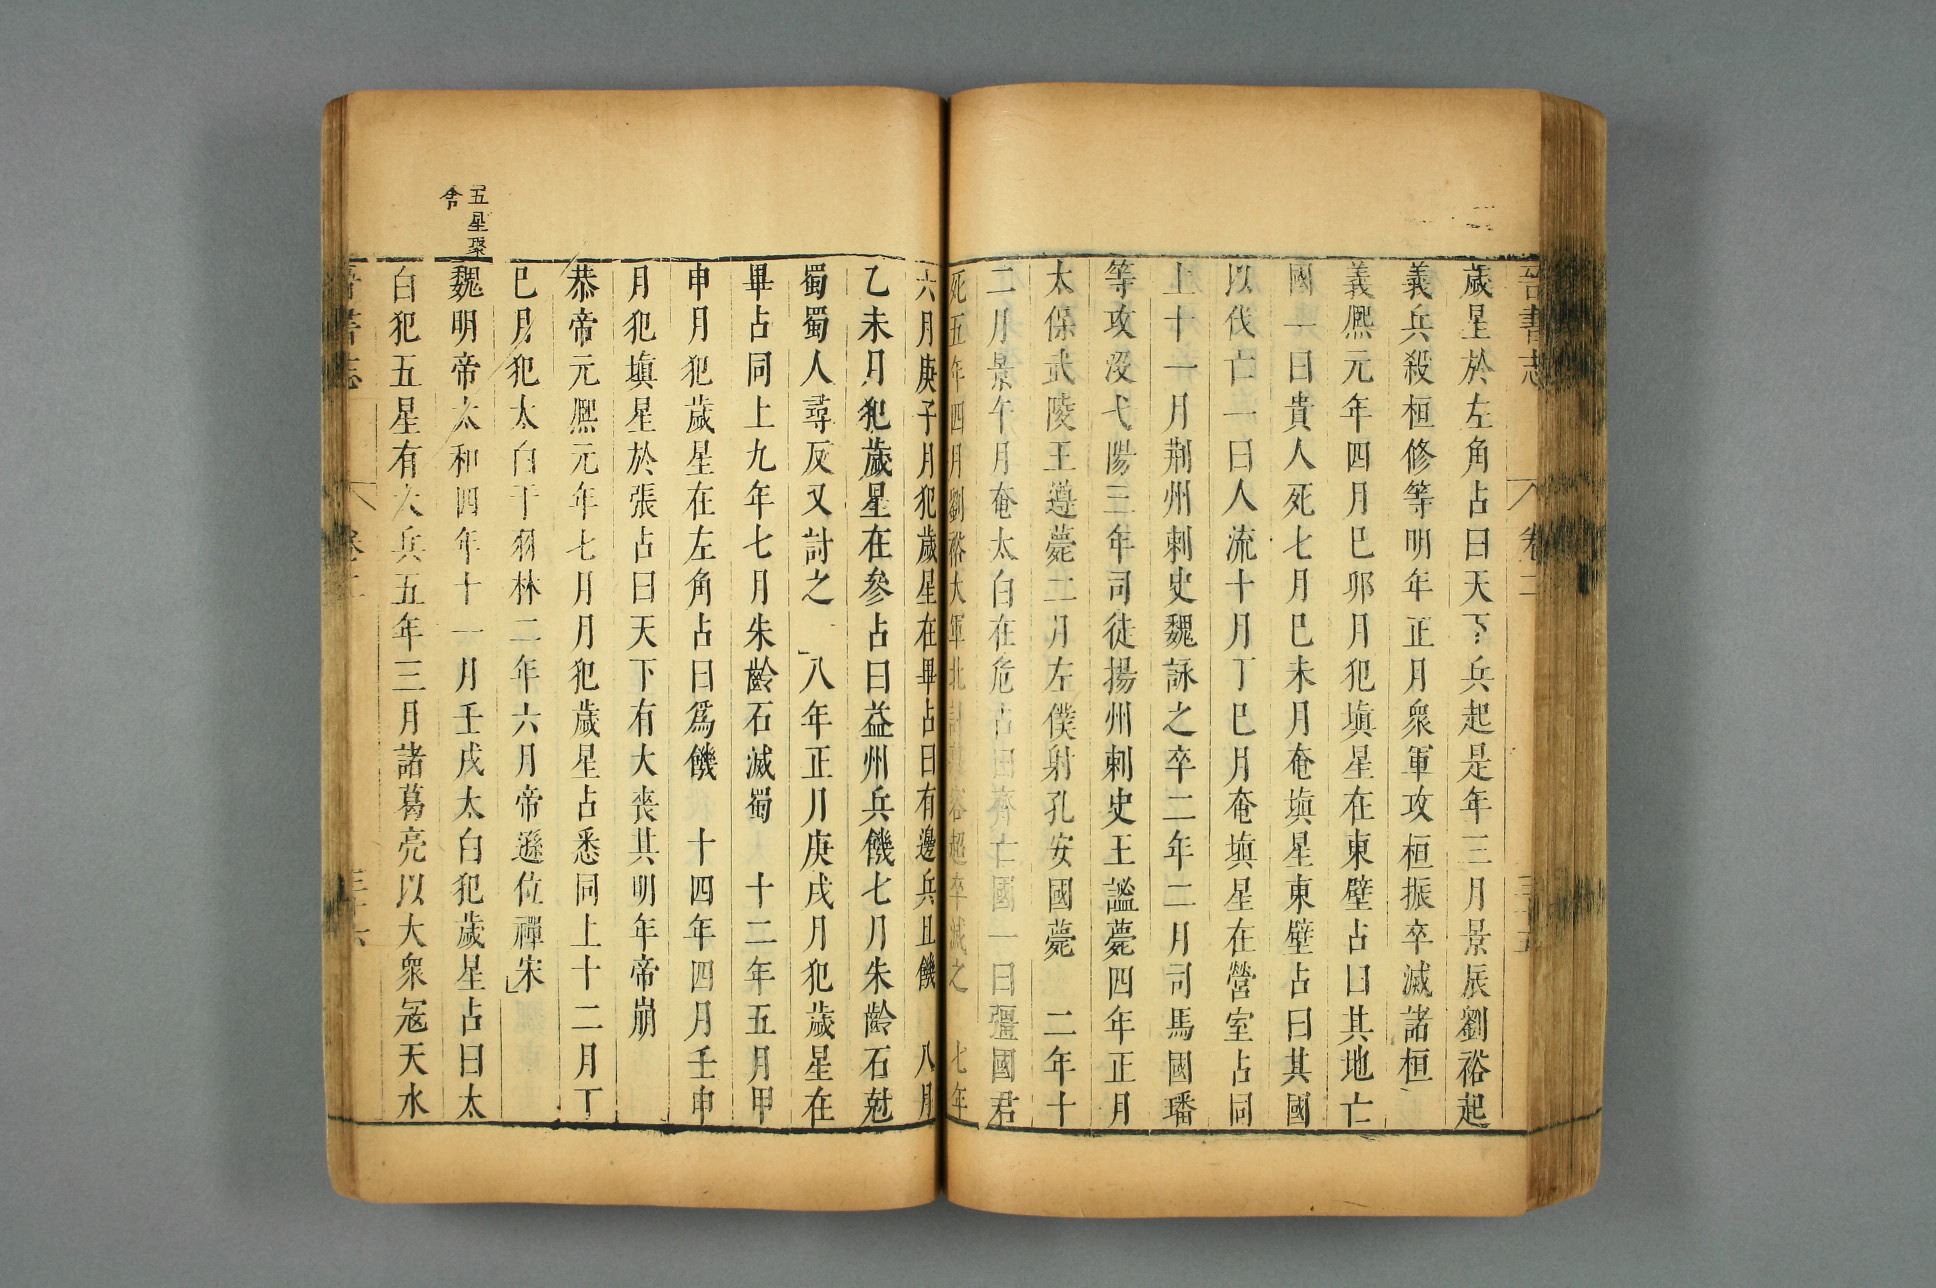 晉書志 卷二 三十五
歲星於左角占曰天下兵起是年三月景辰劉裕起
義兵殺桓修等明年正月衆軍攻桓振卒滅諸桓
義熙元年四月巳卯月犯塡星在東壁占曰其地亡
國一曰貴人死七月巳未月奄塡星東壁占曰其國
以伐亡一曰人流十月丁巳月奄塡星在營室占同
上十一月荆州刺史魏詠之卒二年二月司馬國璠
等攻沒弋陽三年司徒揚州刺史王謐薨四年正月
太保武陵王遵薨二月左僕射孔安國薨 二年十
二月景午月奄太白在危占曰齊亡國一曰彊國君
死五年四月劉裕大軍北討慕容超卒滅之 七年
六月庚子月犯歲星在畢占曰有邊兵且饑 八月
乙未月犯歲星在參占曰益州兵饑七月朱齡石尅
蜀蜀人尋反又討之 八年正月庚戌月犯歲星在
畢占同上九年七月朱齡石滅蜀 十二年五月甲
申月犯歲星在左角占曰爲饑 十四年四月壬申
月犯塡星於張占曰天下有大喪其明年帝崩
恭帝元熙元年七月月犯歲星占悉同上十二月丁
巳月犯太白于羽林二年六月帝遜位禪宋
五星聚
舍
魏明帝太和四年十一月壬戌太白犯歲星占曰太
白犯五星有大兵五年三月諸葛亮以大衆寇天水
晉書志 卷二 三十六